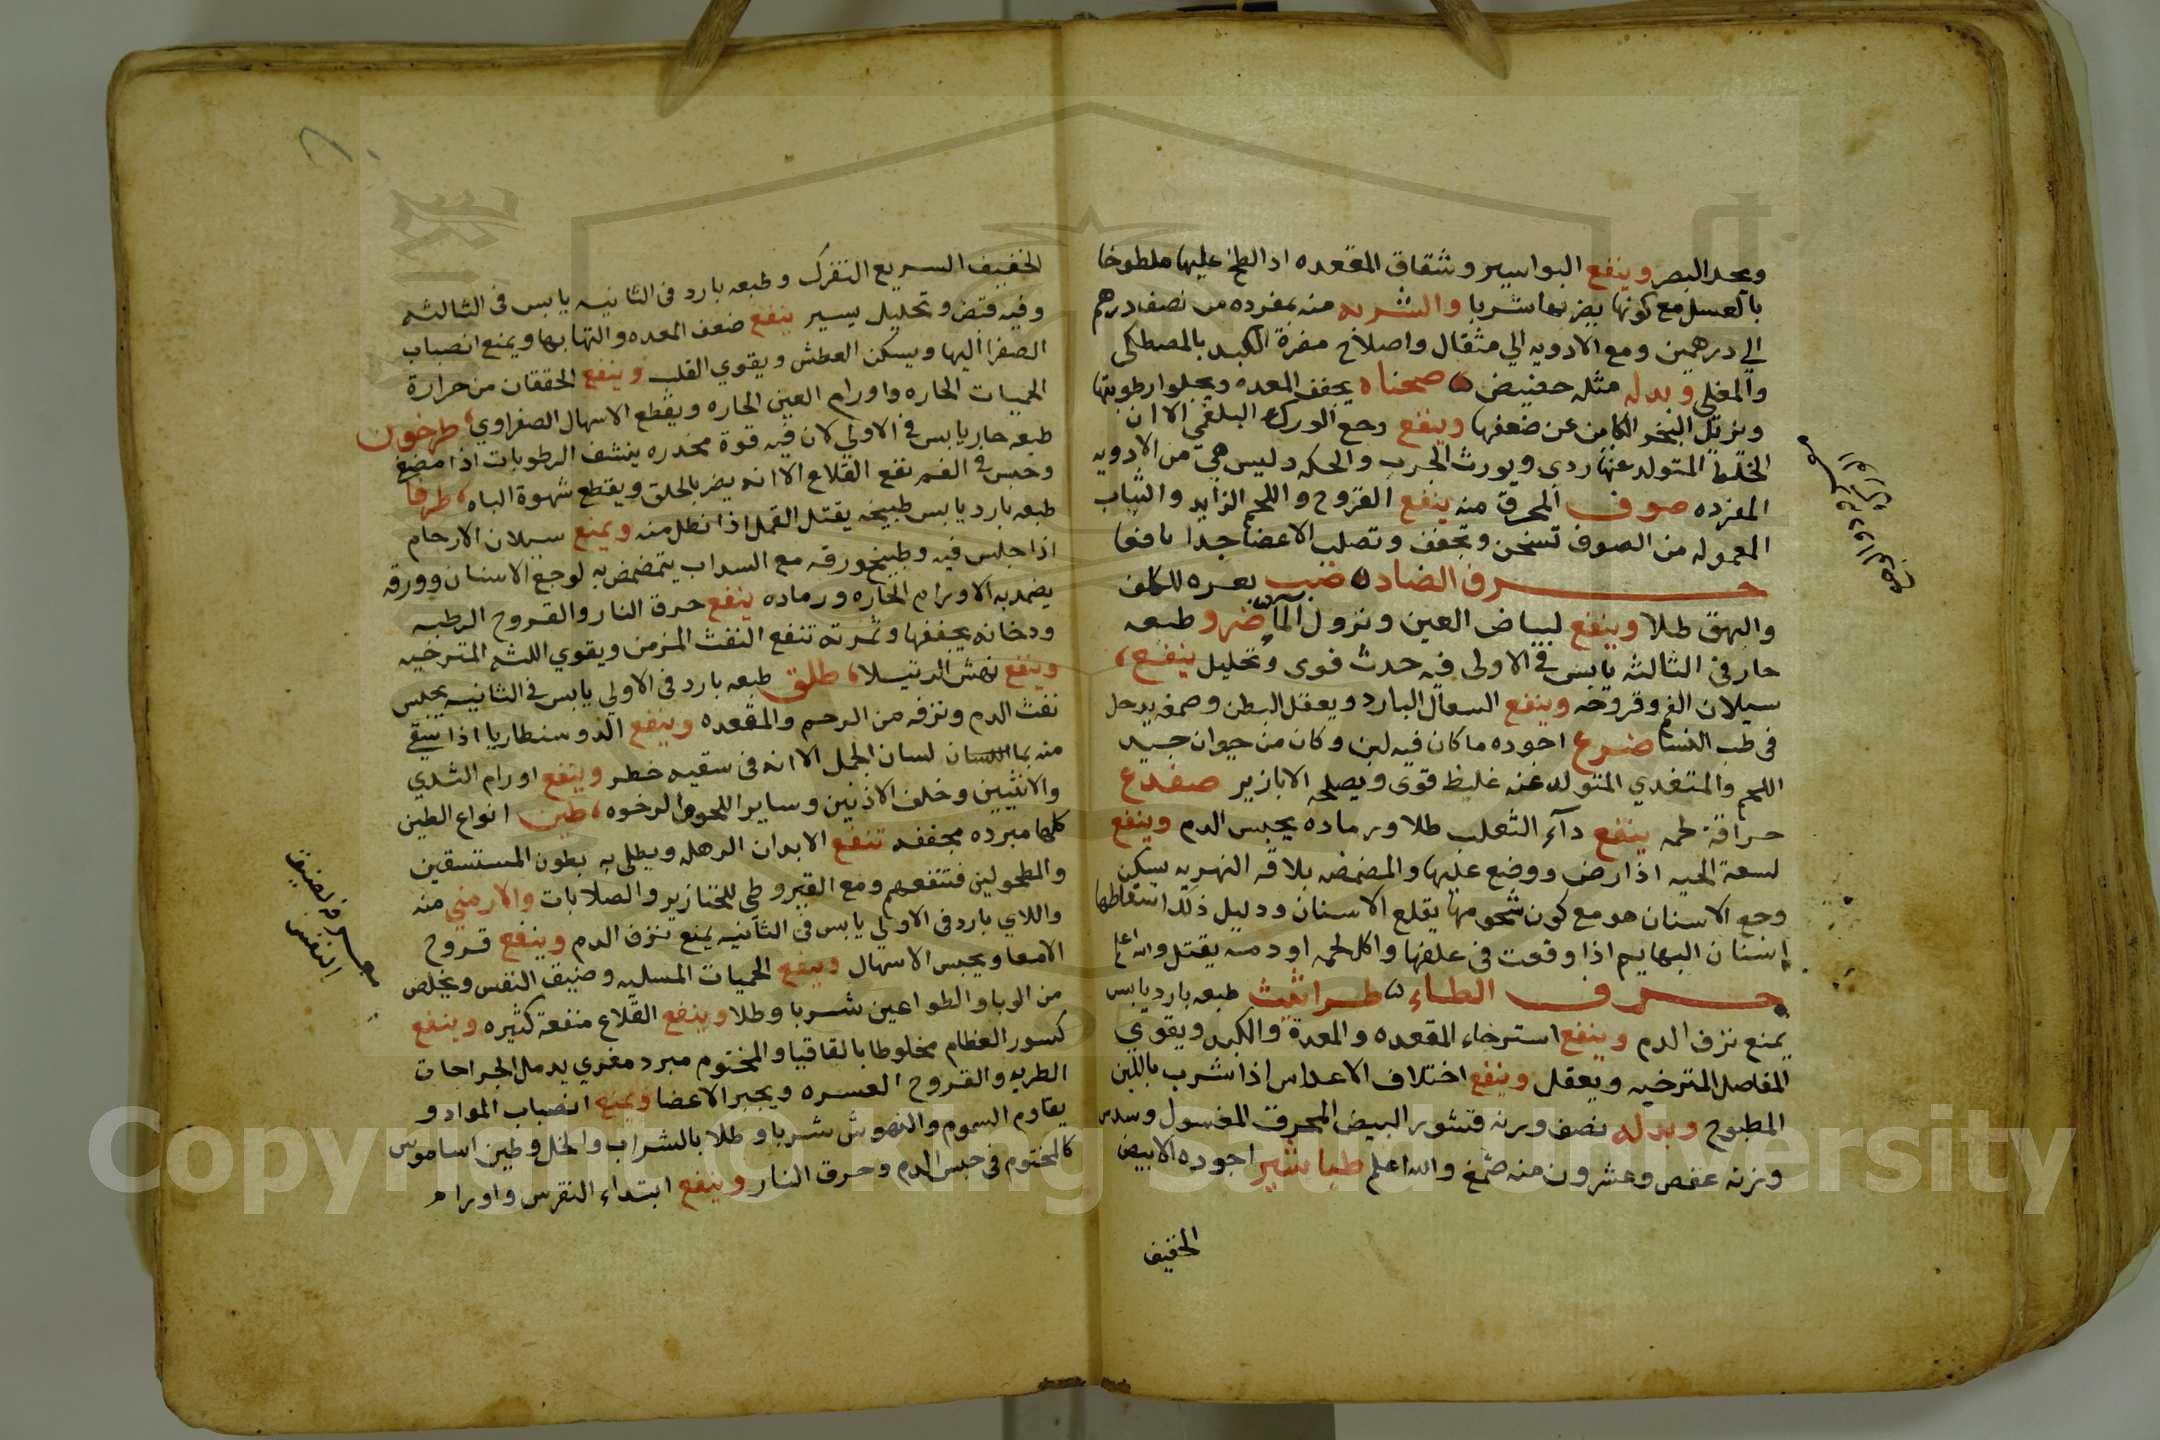 ويحد البصر وينفع البواسير وشقاق المقعده اذا لطخ عليها ملطوخا
بالعسل مع كونها يضر بها شربا والشربه منه بمفرده من نصف درهم
الي درهمين ومع الادويه الي مثقال واصلاح مضرة الكبد بالمصطكى
والمغلى وبدله مثله حضيض صحناه يجفف المعده ويجلوا رطوبتها
ويزيل البخر الكاين عن ضعفها وينفع وجع الورك البلغمي الا ان
الخلط المتولد عنها ردى ويورث الجرب والحكه وليس هي من الادويه
المفرده صوف المحرق منه ينفع القروح واللحم الزايد والثياب
المعموله من الصوف تسخن وتجفف وتصلب الاعضا جدا نافعا
حرف الضاد ضب بعره للكلف
والبهق طلا وينفع لبياض العين ونزول الما ضرو طبعه
حار في الثالثه يابس في الاولى فيه حدت قوى وتحليل ينفع
سيلان الفم وقروحه وينفع السعال البارد ويعقل البطن وصمغه يدخل
في طب النسا ضرع اجوده ما كان فيه لبن وكان من حيوان جيد
اللحم والمتغدي المتولد عنه غليظ قوى ويصلحه الابازير ضفدع
حراقة لحمه ينفع دآء الثعلب طلا ورماده يحبس الدم وينفع
لسعة الحيه اذا رض ووضع عليها والمضمضه بلاقه النهريه يسكن
وجع الاسنان هو مع كون شحومها يقلع الاسنان ودليل ذلك اسقاطها
اسنان البهايم اذا وقعت في علفها واكل لحمه او دمه يقتل والله اعلم
حرف الطاء طراثيث طبعه بارد يابس
يمنع نزف الدم وينفع استرخاء المقعده والمعدة والكبد ويقوي
المفاصل المترخيه ويعقل وينفع اختلاف الاعراس اذا شرب باللبن
المطبوح وبدله نصف وزنه قشور البيض المحرق المغسول وسدس
وزنه عفص وعشرون منه صمغ والله اعلم طباشير اجوده الابيض
الخفيف
الخفيف السريع التفرك وطبعه بارد في الثانيه يابس في الثالثه
وفيه قبض وتحليل يسير ينفع ضعف المعده والتهابها ويمنع انصباب
الصفرا اليها ويسكن العطش ويقوي القلب وينفع الخفقان من حرارة
الحميات الحاره واورام العين الحاره ويقطع الاسهال الصفراوي طرخون
طبعه حار يابس في الاولى لان فيه قوة مخدره ينشف الرطوبات اذا مضغ
وحبس في الفم نفع القلاع الا انه يضر بالحلق ويقطع شهوة الباه طرفا
طبعه بارد يابس طبيخه يقتل القمل اذا نطل منه ويمنع سيلان الارحام
اذا جلس فيه وطبيخ ورقه مع السداب يتمضمض به لوجع الاسنان وورقه
يضمد به الاورام الحاره ورماده ينفع حرق النار والقروح الرطبه
ودخانه يجففها وثمرته تنفع النفث المزمن ويقوي اللثه المترخيه
وينفع نهش الرتيلا طلق طبعه بارد في الاولي يابس في الثانيه يحبس
نفث الدم ونزفه من الرحم والمقعده وينفع الدوسنطاريا اذا سقي
منه بما لسان الحمل الا انه في سقيه خطر وينفع اورام الثدي
والانثيين وخلف الاذنين وساير اللحوم الرخوه طين انواع الطين
كلها مبرده مجففه تنفع الابدان الرهله ويطلى به بطون المستسقين
والمطحولين فتنفعهم ومع القيروطي للخنازير والصلابات والارمني منه
واللاي بارد في الاولي يابس في الثانيه يمنع نزف الدم وينفع قروح
الامعا ويحبس الاسهال وينفع الحميات المسليه وضيق النفس ويخلص
من الوبا والطواعين شربا وطلا وينفع القلاع منفعة كثيره وينفع
كسور العظام مخلوطا بالقاقيا والمختوم مبرد مغري يدمل الجراحات
الطريه والقروح العسره ويجبر الاعضا ويمنع انصباب المواد و
يقاوم السموم والنهوش شربا وطلا بالشراب والخل وطين اساموس
كالمختوم في حبس الدم وحرق النار وينفع ابتداء النقرس واورام
Copyright © King Saud University